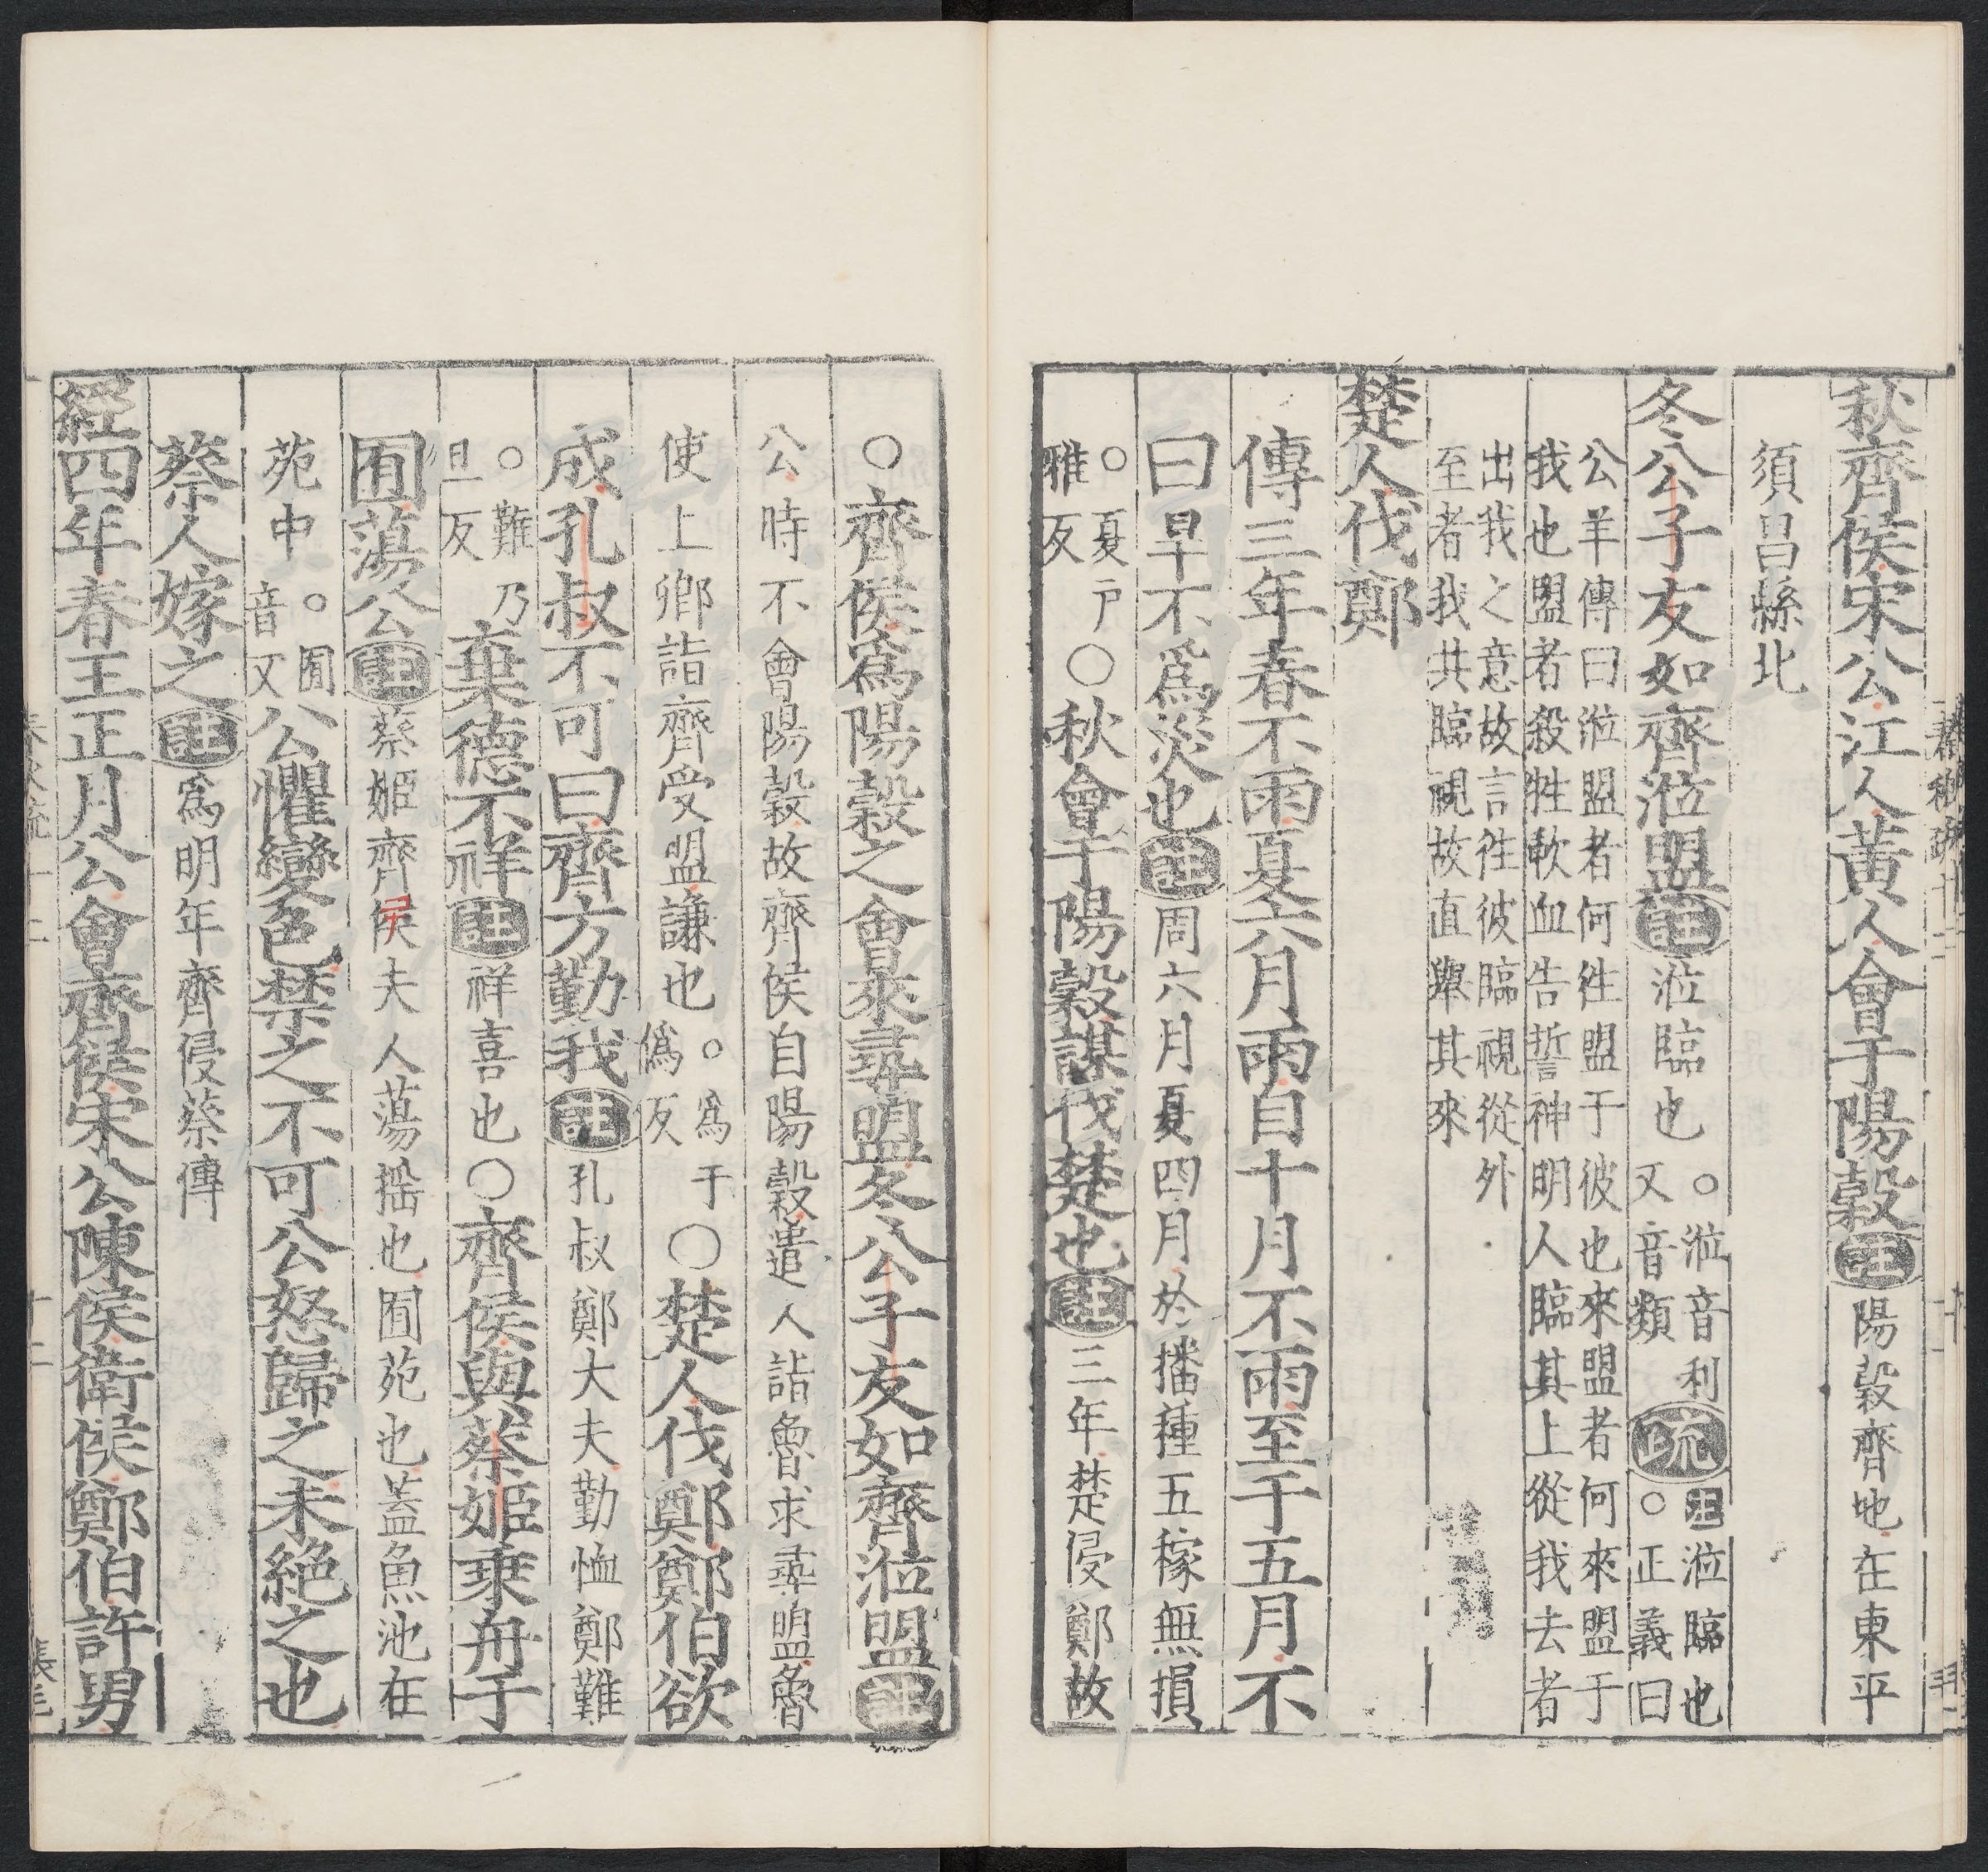 秋齊侯宋公江人黃人會于陽穀註陽穀齊地在東平
須昌縣北
冬公子友如齊涖盟註涖臨也○涖音利又音類疏注涖臨也○正義曰
公羊傳曰涖盟者何徃盟于彼也來盟者何來盟于
我也盟者殺牲歃血告誓神明人臨其上從我去者
出我之意故言徃彼臨視從外
至者我共臨視故直舉其來
楚人伐鄭
傳三年春不雨夏六月雨自十月不雨至于五月不
曰旱不為災也註周六月夏四月於播種五稼無損
○夏户雅反○秋會于陽穀謀伐楚也註三年楚侵鄭故
○齊侯為陽穀之會來尋盟冬公子友如齊涖盟註
公時不會陽穀故齊侯自陽穀遣人詣魯求尋盟魯
使上卿詣齊受盟謙也○為于偽反○楚人伐鄭鄭伯欲
成孔叔不可曰齊方勤我註孔叔鄭大夫勤恤鄭難
○難乃旦反棄德不祥註祥喜也○齊侯與蔡姬乗舟于
囿蕩公註蔡姬齊侯夫人蕩揺也囿苑也蓋魚池在
苑中○囿音又公懼變色禁之不可公怒歸之未絕之也
蔡人嫁之註為明年齊侵蔡傳
經四年春王正月公會齊侯宋公陳侯衛侯鄭伯許男